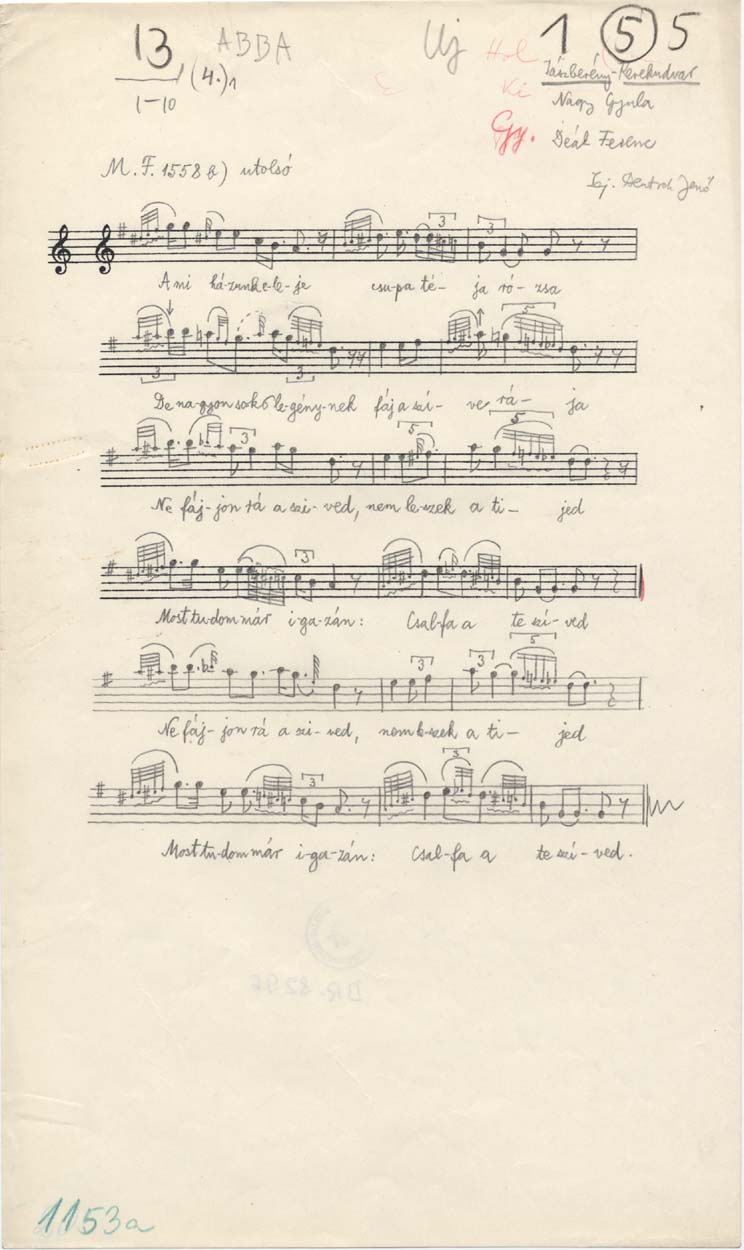 13
1-10
/(4.)1
ABBA
Uj
Hol
Ki
Gy.
1 5 5
Jászberény-Kerekudvar
Nagy Gyula
Deák Ferenc
M.F. 1558 b) utolsó
3 3
A mi há-zunk e-le-je csu-pa té- ja ró- zsa
5
3 3
De na-gyon sok legény-nek fáj a szí- ve rá- ja
3 5 5
Ne fáj-jon rá a szi-ved, nem le-szek a ti- jed
3
Most tu-dom már i-ga-zán: Csal-fa a te szí-ved
3 3 5
Ne fáj-jon rá a szi-ved, nem le-szek a ti- jed
3 3
Most tu-dom már i-ga-zán: Csal-fa a te szí-ved.
1153a